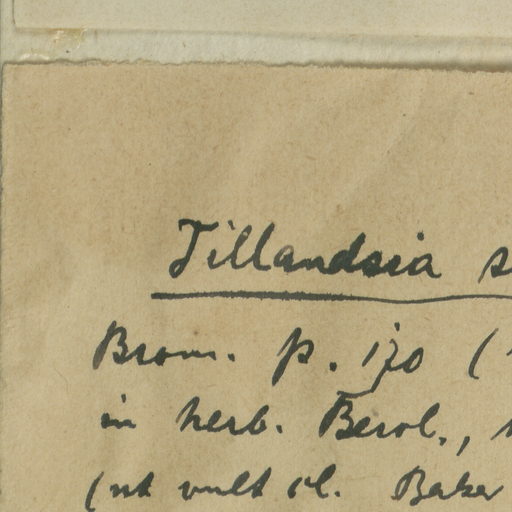 Tillandsia s
Brom. p. 170 (
in herb. Berol.,
(ut vult cl. Baker